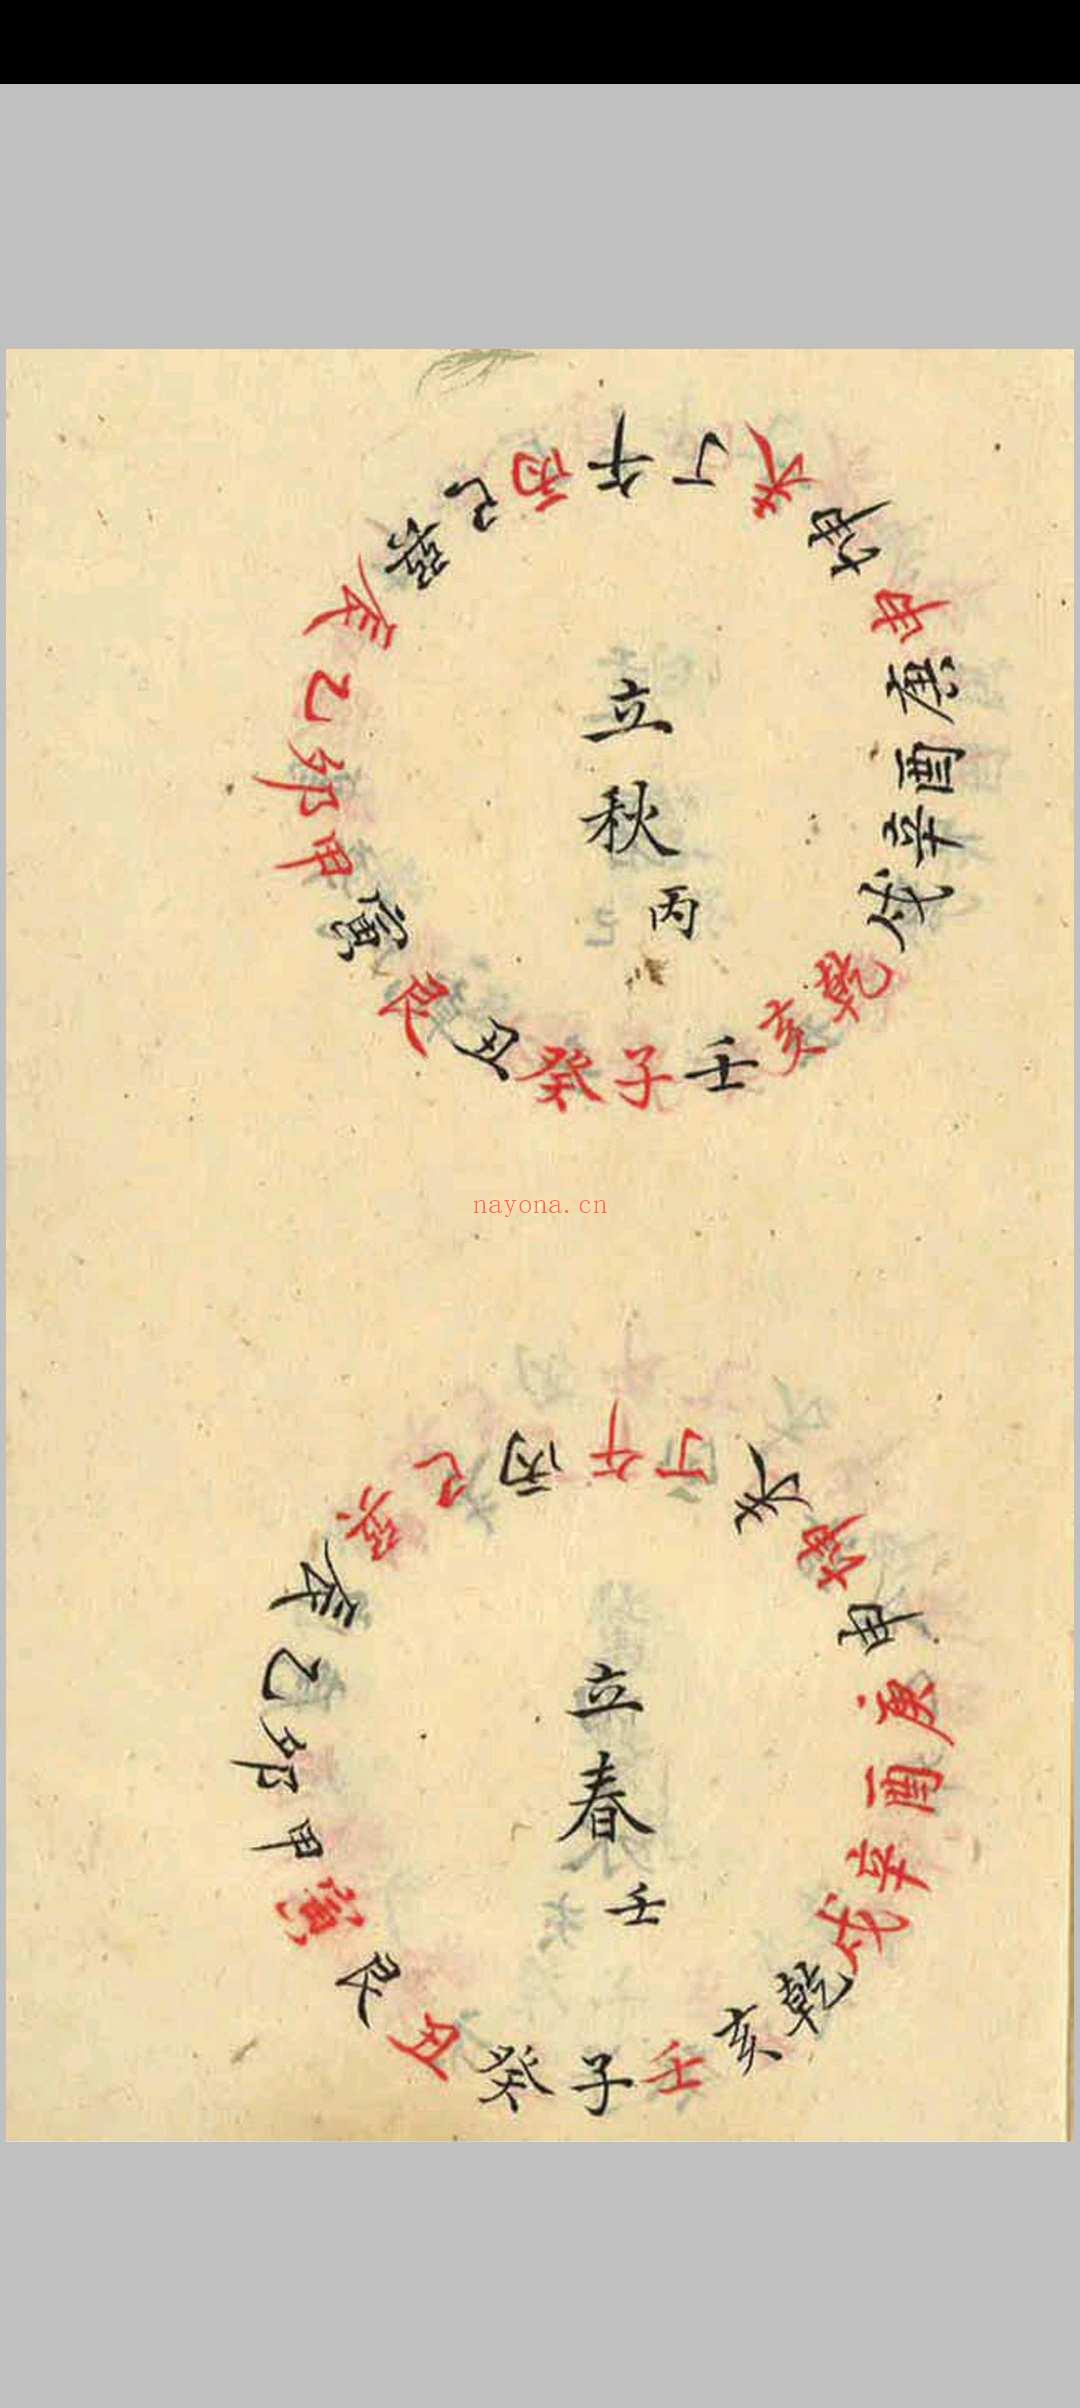 午丁未坤申庚酉辛戌乾亥壬子癸丑艮寅甲卯乙辰巽巳丙
立
秋
丙
nayona.cn
午丁未坤申庚酉辛戌乾亥壬子癸丑艮寅甲卯乙辰巽巳丙
立
春
壬